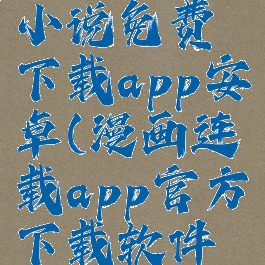 小说免费
下载app安
卓(漫画连
载app官方
下载软件